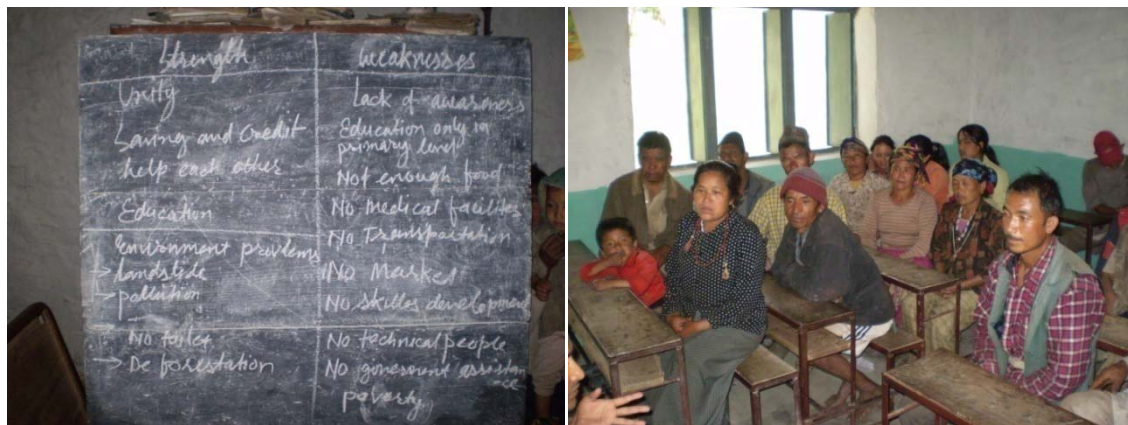 Strength
Unity
Saving and Credit
help each other
Education
Envirnment problems
→ landslide
→ pollution
No toilet
→ De forestation
Weaknesses
Lack of awareness
Education only in
primary level
Not enough food
No medical facilites
No Transpotation
No Market
No skilles development
No technical people
No goverment assistan
-ce
poverty